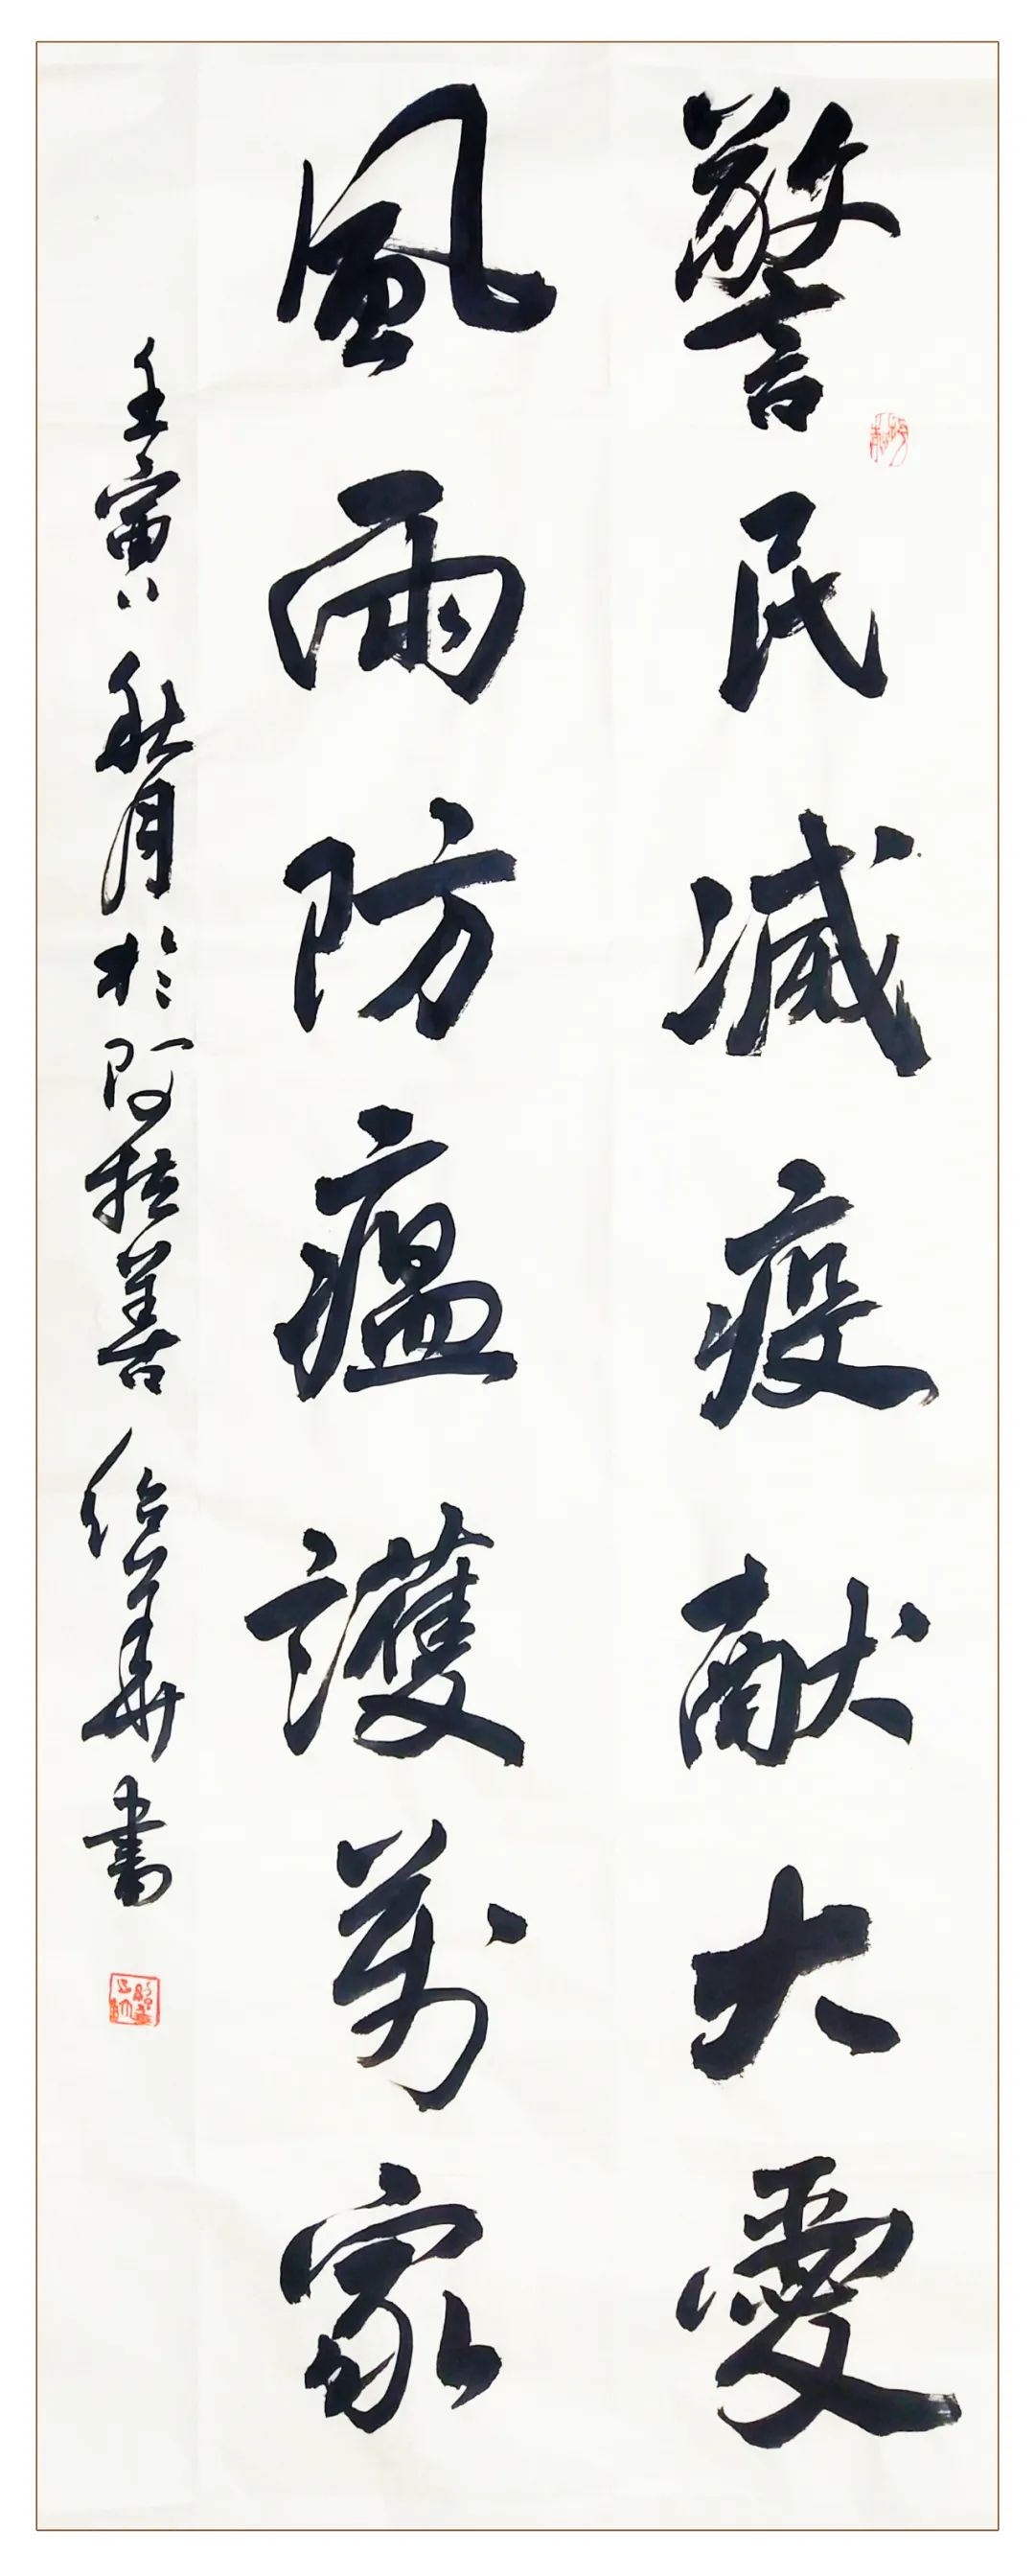 警民滅疫献大愛
風雨防瘟護萬家
壬寅秋月於阿拉善紹華書